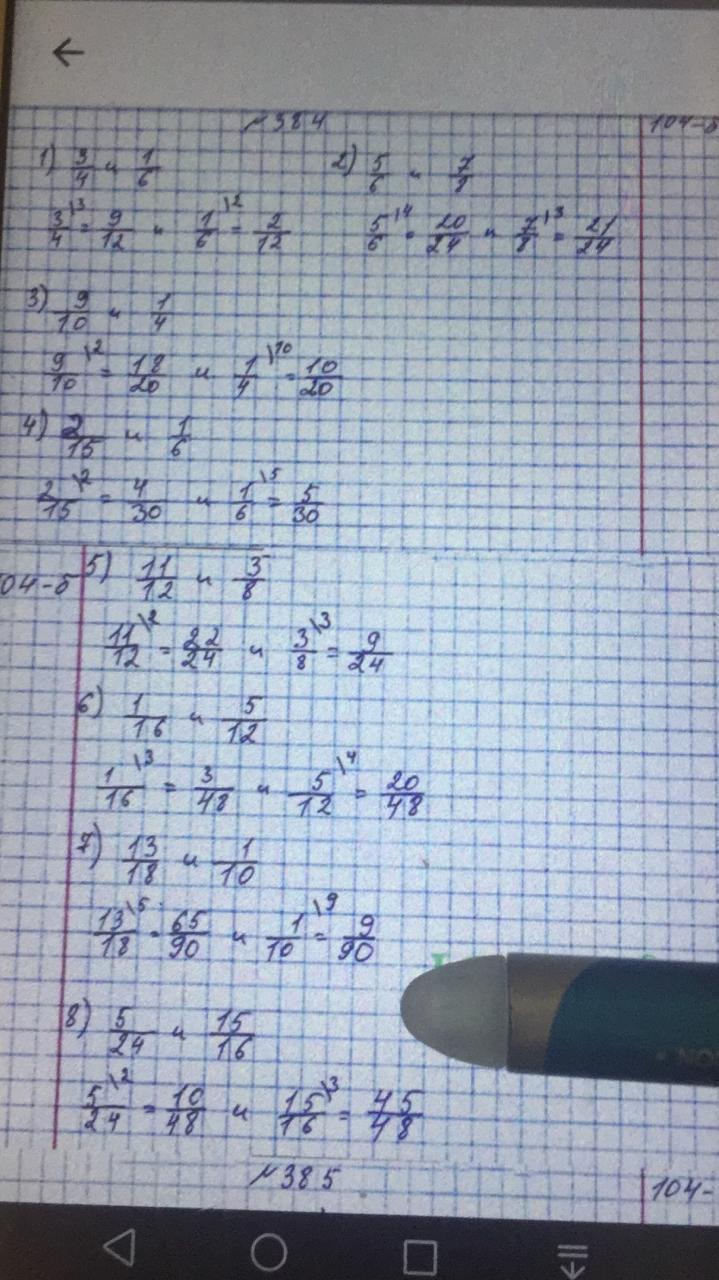 ←
№384
104-б
1) 3/4 и 1/6
2) 5/6 и 7/8
3/4\3 = 9/12 и 1/6\2 = 2/12
5/6\4 = 20/24 и 7/8\3 = 21/24
3) 9/10 и 1/4
9/10\2 = 18/20 и 1/4\10 = 10/20
4) 2/15 и 1/6
2/15\2 = 4/30 и 1/6\5 = 5/30
04-б
5) 11/12 и 3/8
11/12\2 = 22/24 и 3/8\3 = 9/24
6) 1/16 и 5/12
1/16\3 = 3/48 и 5/12\4 = 20/48
7) 13/18 и 1/10
13/18\5 = 65/90 и 1/10\9 = 9/90
8) 5/24 и 15/16
5/24\2 = 10/48 и 15/16\3 = 45/48
№385
104-